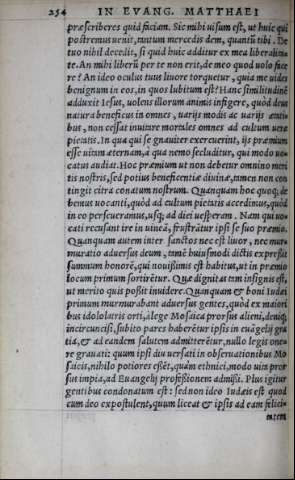 254 IN EVANG. MATTHAEI
præscriberes quid faciam. Sic mihi uisum est, ut huic qui
postremus uenit, tantum mercedis dem, quantū tibi. De
tuo nihil decedit, si quid huic additur ex mea liberalita
te. An mihi liberū per te non erit, de meo quod uolo face
re? An ideo oculus tuus liuore torquetur, quia me uides
benignum in eos, in quos lubitum est? Hanc similitudinē
adduxit Iesus, uolens illorum animis infigere, quòd deus
natura beneficus in omnes, uarijs modis ac uarijs ætati
bus, non cessat inuitare mortales omnes ad cultum ueræ
pietatis. In qua qui se gnauiter exercuerint, ijs præmium
esse uitam æternam, a qua nemo secluditur, qui modo uo
catus audiat. Hoc præmium ut non debetur omnino meri
tis nostris, sed potius beneficentiæ diuinæ, tamen non con
tingit citra conatum nostrum. Quanquam hoc quoq; de
bemus uocanti, quòd ad cultum pietatis accedimus, quòd
in eo perseueramus, usq; ad diei uesperam. Nam qui uo-
cati recusant ire in uineā, frustrātur ipsi se suo præmio.
Quanquam autem inter sanctos nec est liuor, nec mur-
muratio aduersus deum, tamē huiusmodi dictis expressit
summum honorē, qui nouissimis est habitus, ut in præmio
locum primum sortirētur. Quæ dignitas tam insignis est,
ut merito quis possit inuidere. Quanquam & boni Iudæi
primum murmurabant aduersus gentes, quòd ex maiori
bus idololatris orti, a lege Mosaica prorsus alieni, deniq;
incircuncisi, subito pares haberētur ipsis in euāgelij gra
tia, & ad eandem salutem admitterētur, nullo legis one-
re grauati: quum ipsi diu uersati in obseruationibus Mo
saicis, nihilo potiores essēt, quàm ethnici, modo uitæ pror
sus impiæ, ad Euangelij professionem admissi. Plus igitur
gentibus condonatum est: sed non ideo Iudæis est quod
cum deo expostulent, quum liceat & ipsis ad eam felici-
tatem